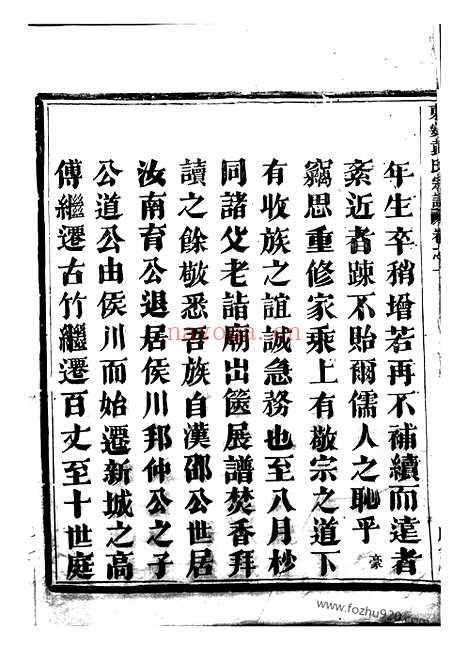 年生卒稍增若再不補續而遠者
紊近者踈不貽爾儒人之恥乎豪
竊思重修家乘上有敬宗之道下
有收族之誼誠急務也至八月杪
同諸父老詣廟出篋展譜焚香拜
讀之餘敬悉吾族自漢邵公世居
汝南育公退居侯川邦仲公之子
公道公由侯川而始遷新城之高
傅繼遷古竹繼遷百丈至十世庭
nayona.cn
www.fozhu920.com